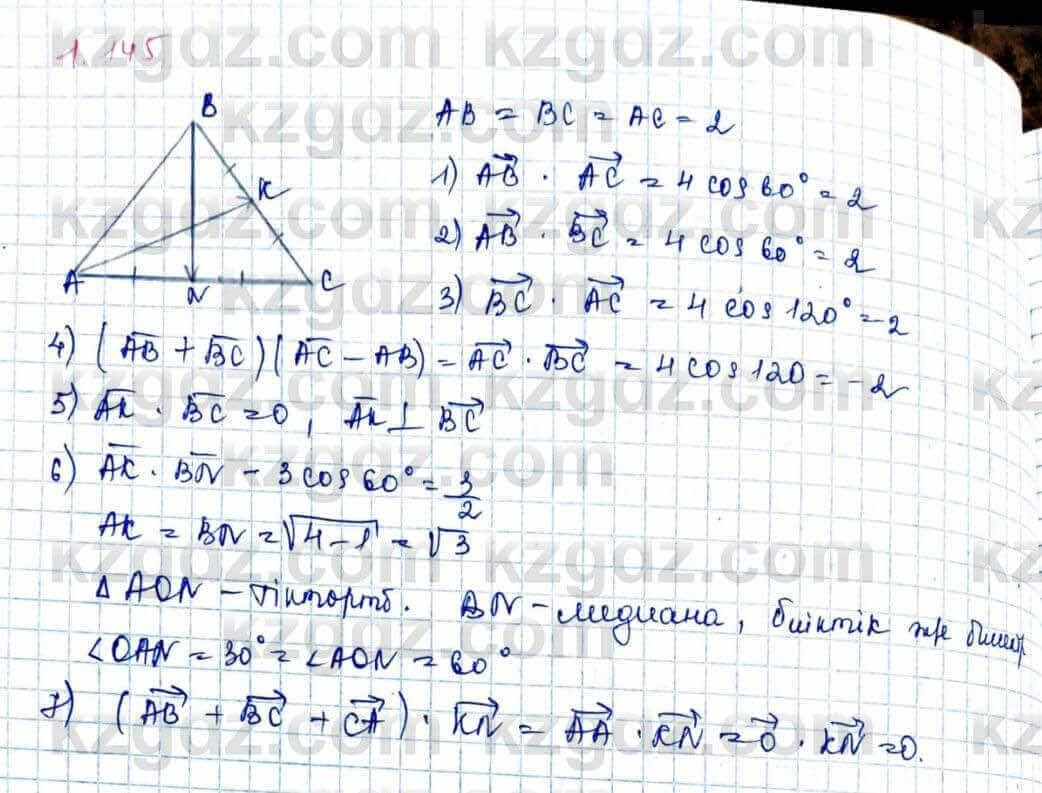 1.145
B
K
A
N
C
AB = BC = AC = 2
1) AB · AC = 4 cos 60° = 2
2) AB · BC = 4 cos 60° = 2
3) BC · AC = 4 cos 120° = -2
4) (AB + BC)(AC - AB) = AC · BC = 4 cos 120 = -2
5) AK · BC = 0, AK ⊥ BC
6) AK · BN - 3 cos 60° = 3/2
AK = BN = √4-1 = √3
△AON - тікторт. BN - медиана, биіктік және
∠OAN = 30° = ∠AON = 60°
7) (AB + BC + CA) · KN = AA · KN = 0 · KN = 0.
kzgdz.com